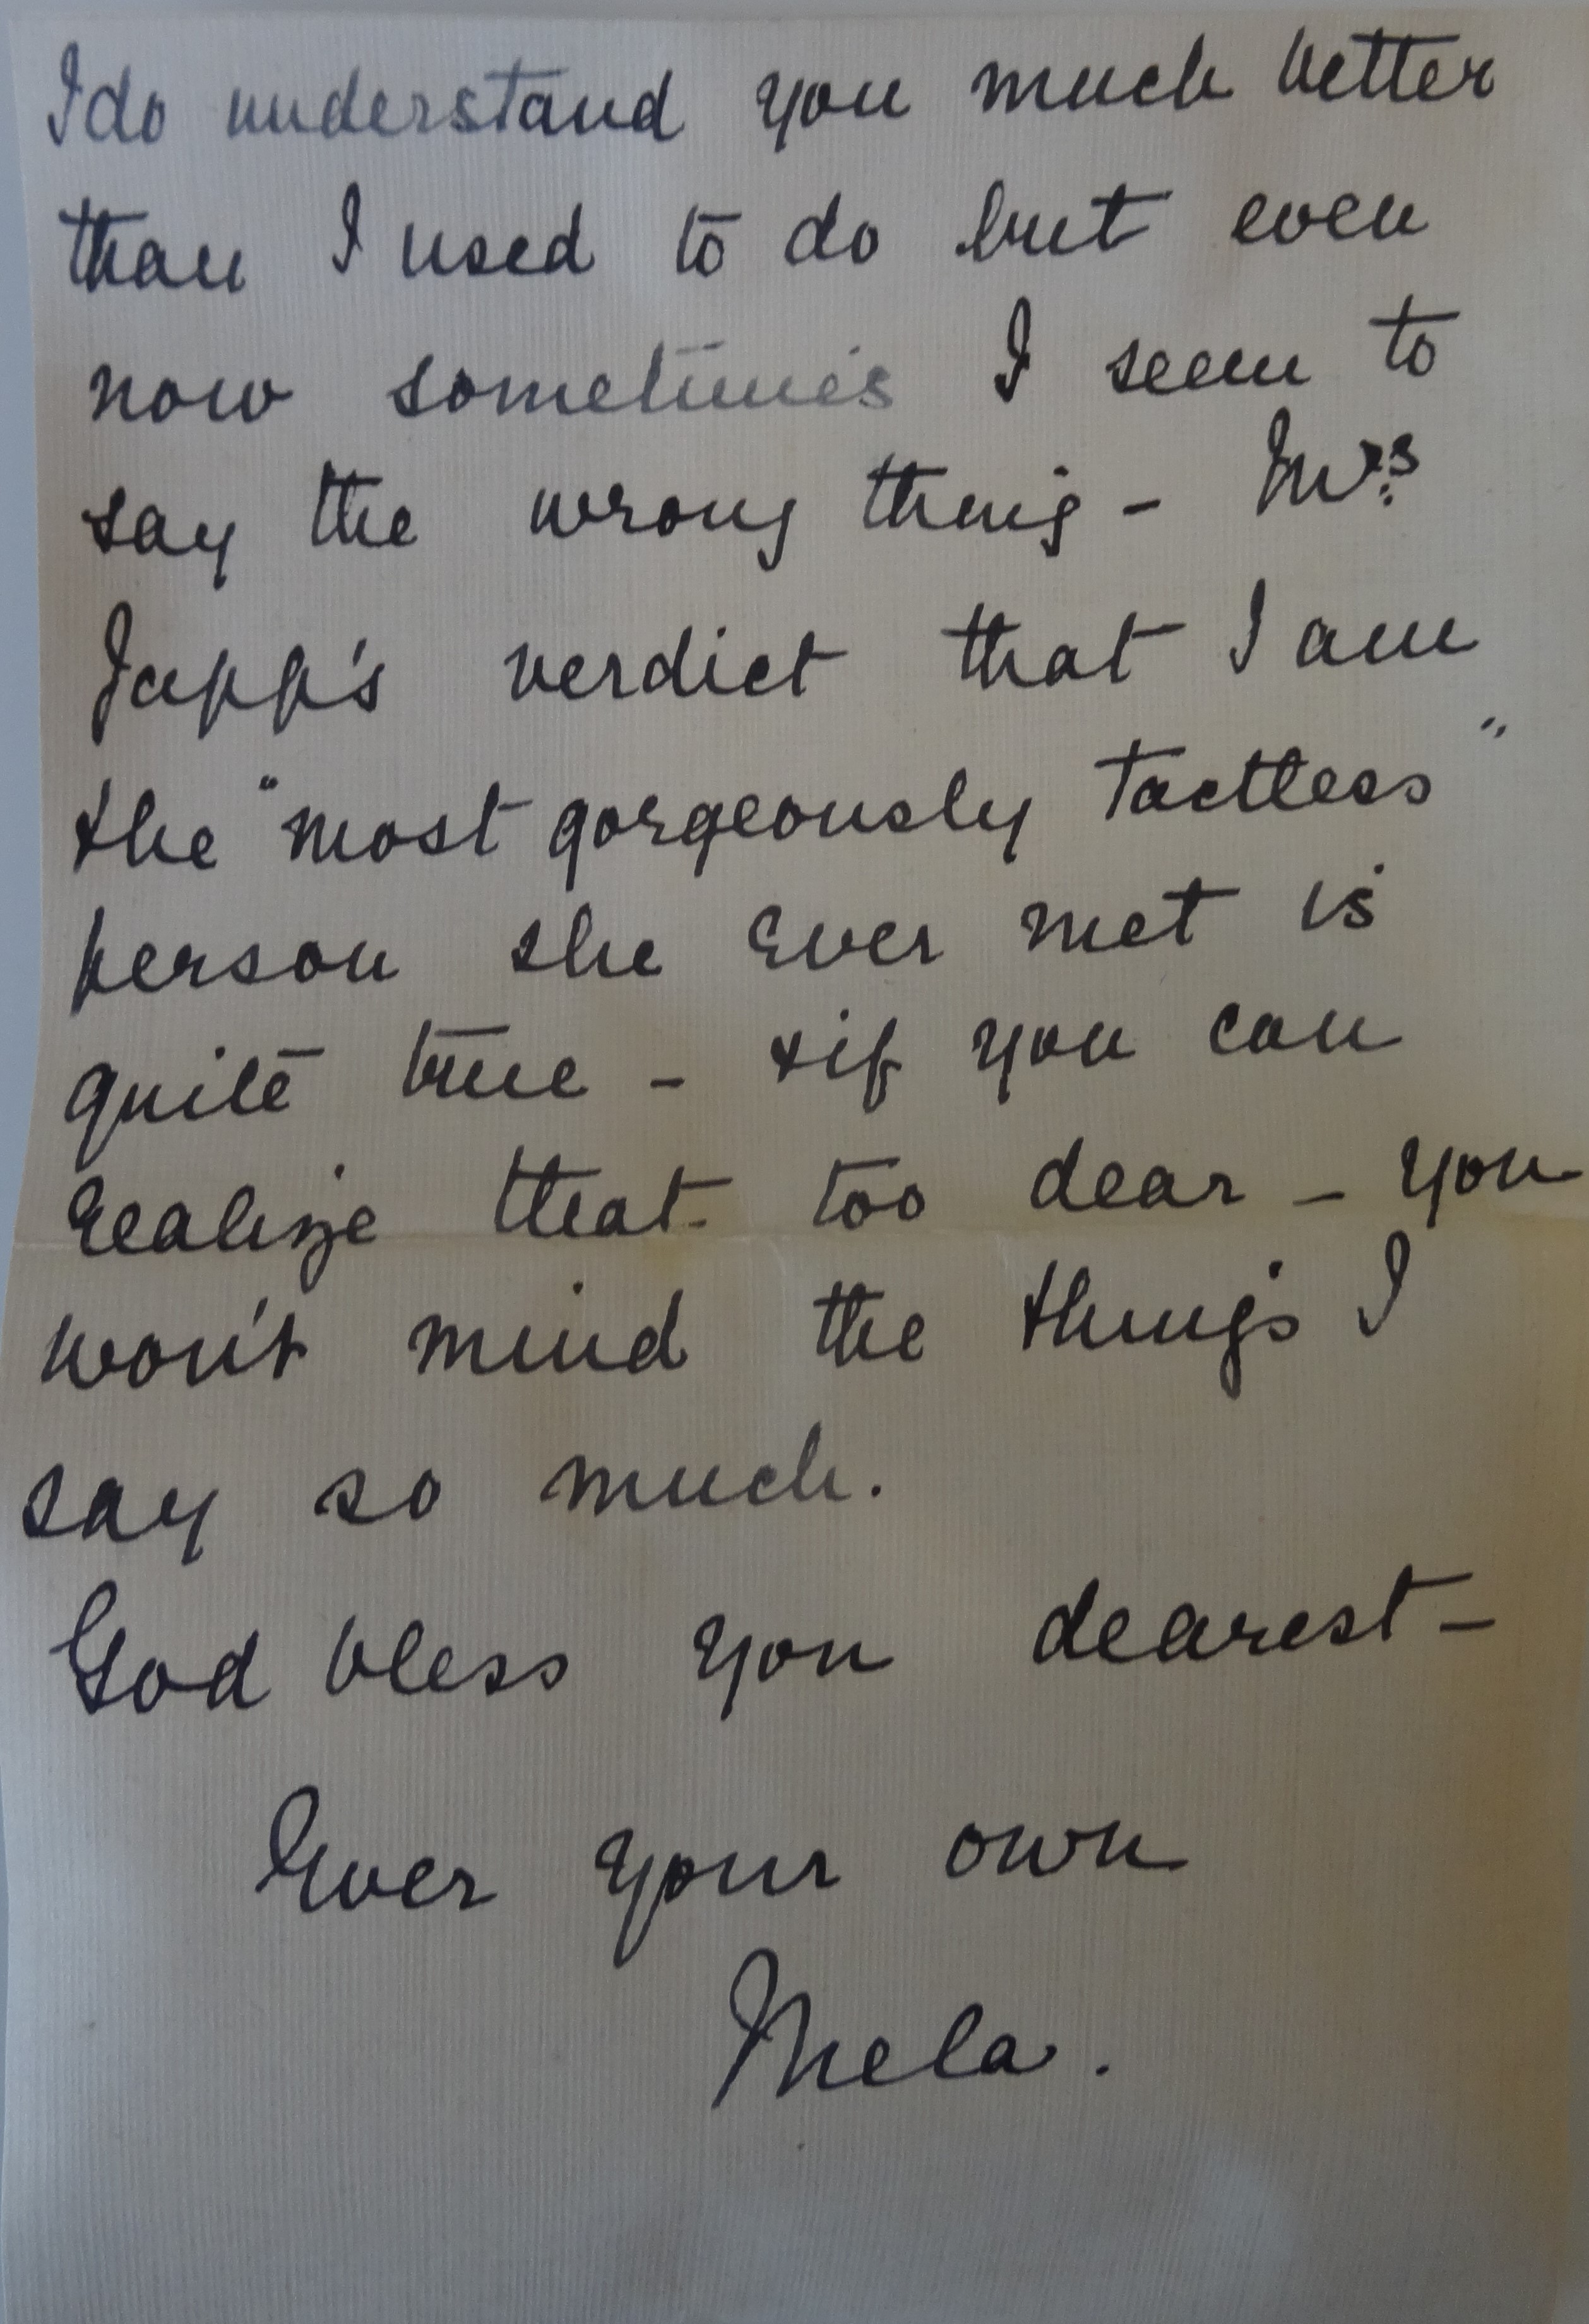 I do understand you much better
than I used to do but even
now sometimes I seem to
say the wrong thing - Mrs
Japp's verdict that I am
the "most gorgeously tactless"
person she ever met is
quite true - & if you can
realize that too dear - you
won't mind the things I
say so much.
God bless you dearest -
Ever your own
Mela.